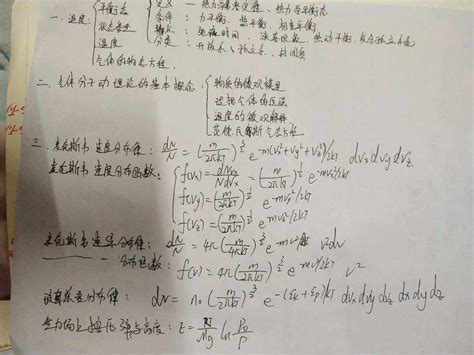 一. 温度:
平衡态
状态参量
温度
气体的物态方程.
定义 — 热力学第零定律, 热力学平衡态
条件: 力平衡, 热平衡, 相变平衡
特点:
分类: 开放系, 孤立系, 封闭系
二. 气体分子动理论的基本概念:
物质的微观模型
理想气体的压强
温度的微观解释
范德瓦耳斯气态方程
三. 麦克斯韦速度分布律: dN/N = (m/2πkT)^{3/2} e^{-m(Vx²+Vy²+Vz²)/2kT} dvx dvy dvz
麦克斯韦速度分布函数:
f(Vx) = dNvx/Ndvx = (m/2πkT)^{1/2} e^{-mvx²/2kT}
f(Vy) = (m/2πkT)^{1/2} e^{-mvy²/2kT}
f(Vz) = (m/2πkT)^{1/2} e^{-mvz²/2kT}
麦克斯韦速率分布律: dN/N = 4π(m/2πkT)^{3/2} e^{-mv²/2kT} v²dv
分布函数: f(v) = 4π(m/2πkT)^{3/2} e^{-mv²/2kT} v²
玻耳兹曼分布律: dN = n₀(m/2πkT)^{3/2} e^{-(εk+εp)/kT} dvx dvy dvz dx dy dz
重力场中按压强与高度: Z = /Mg ln P₀/P